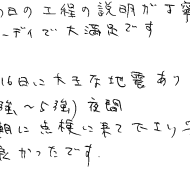 の日の工程の説明が丁寧
ーディで大満足です
16日に大きな地震あり
強〜5強)夜間
朝に点検に来て下さり
良かったです.